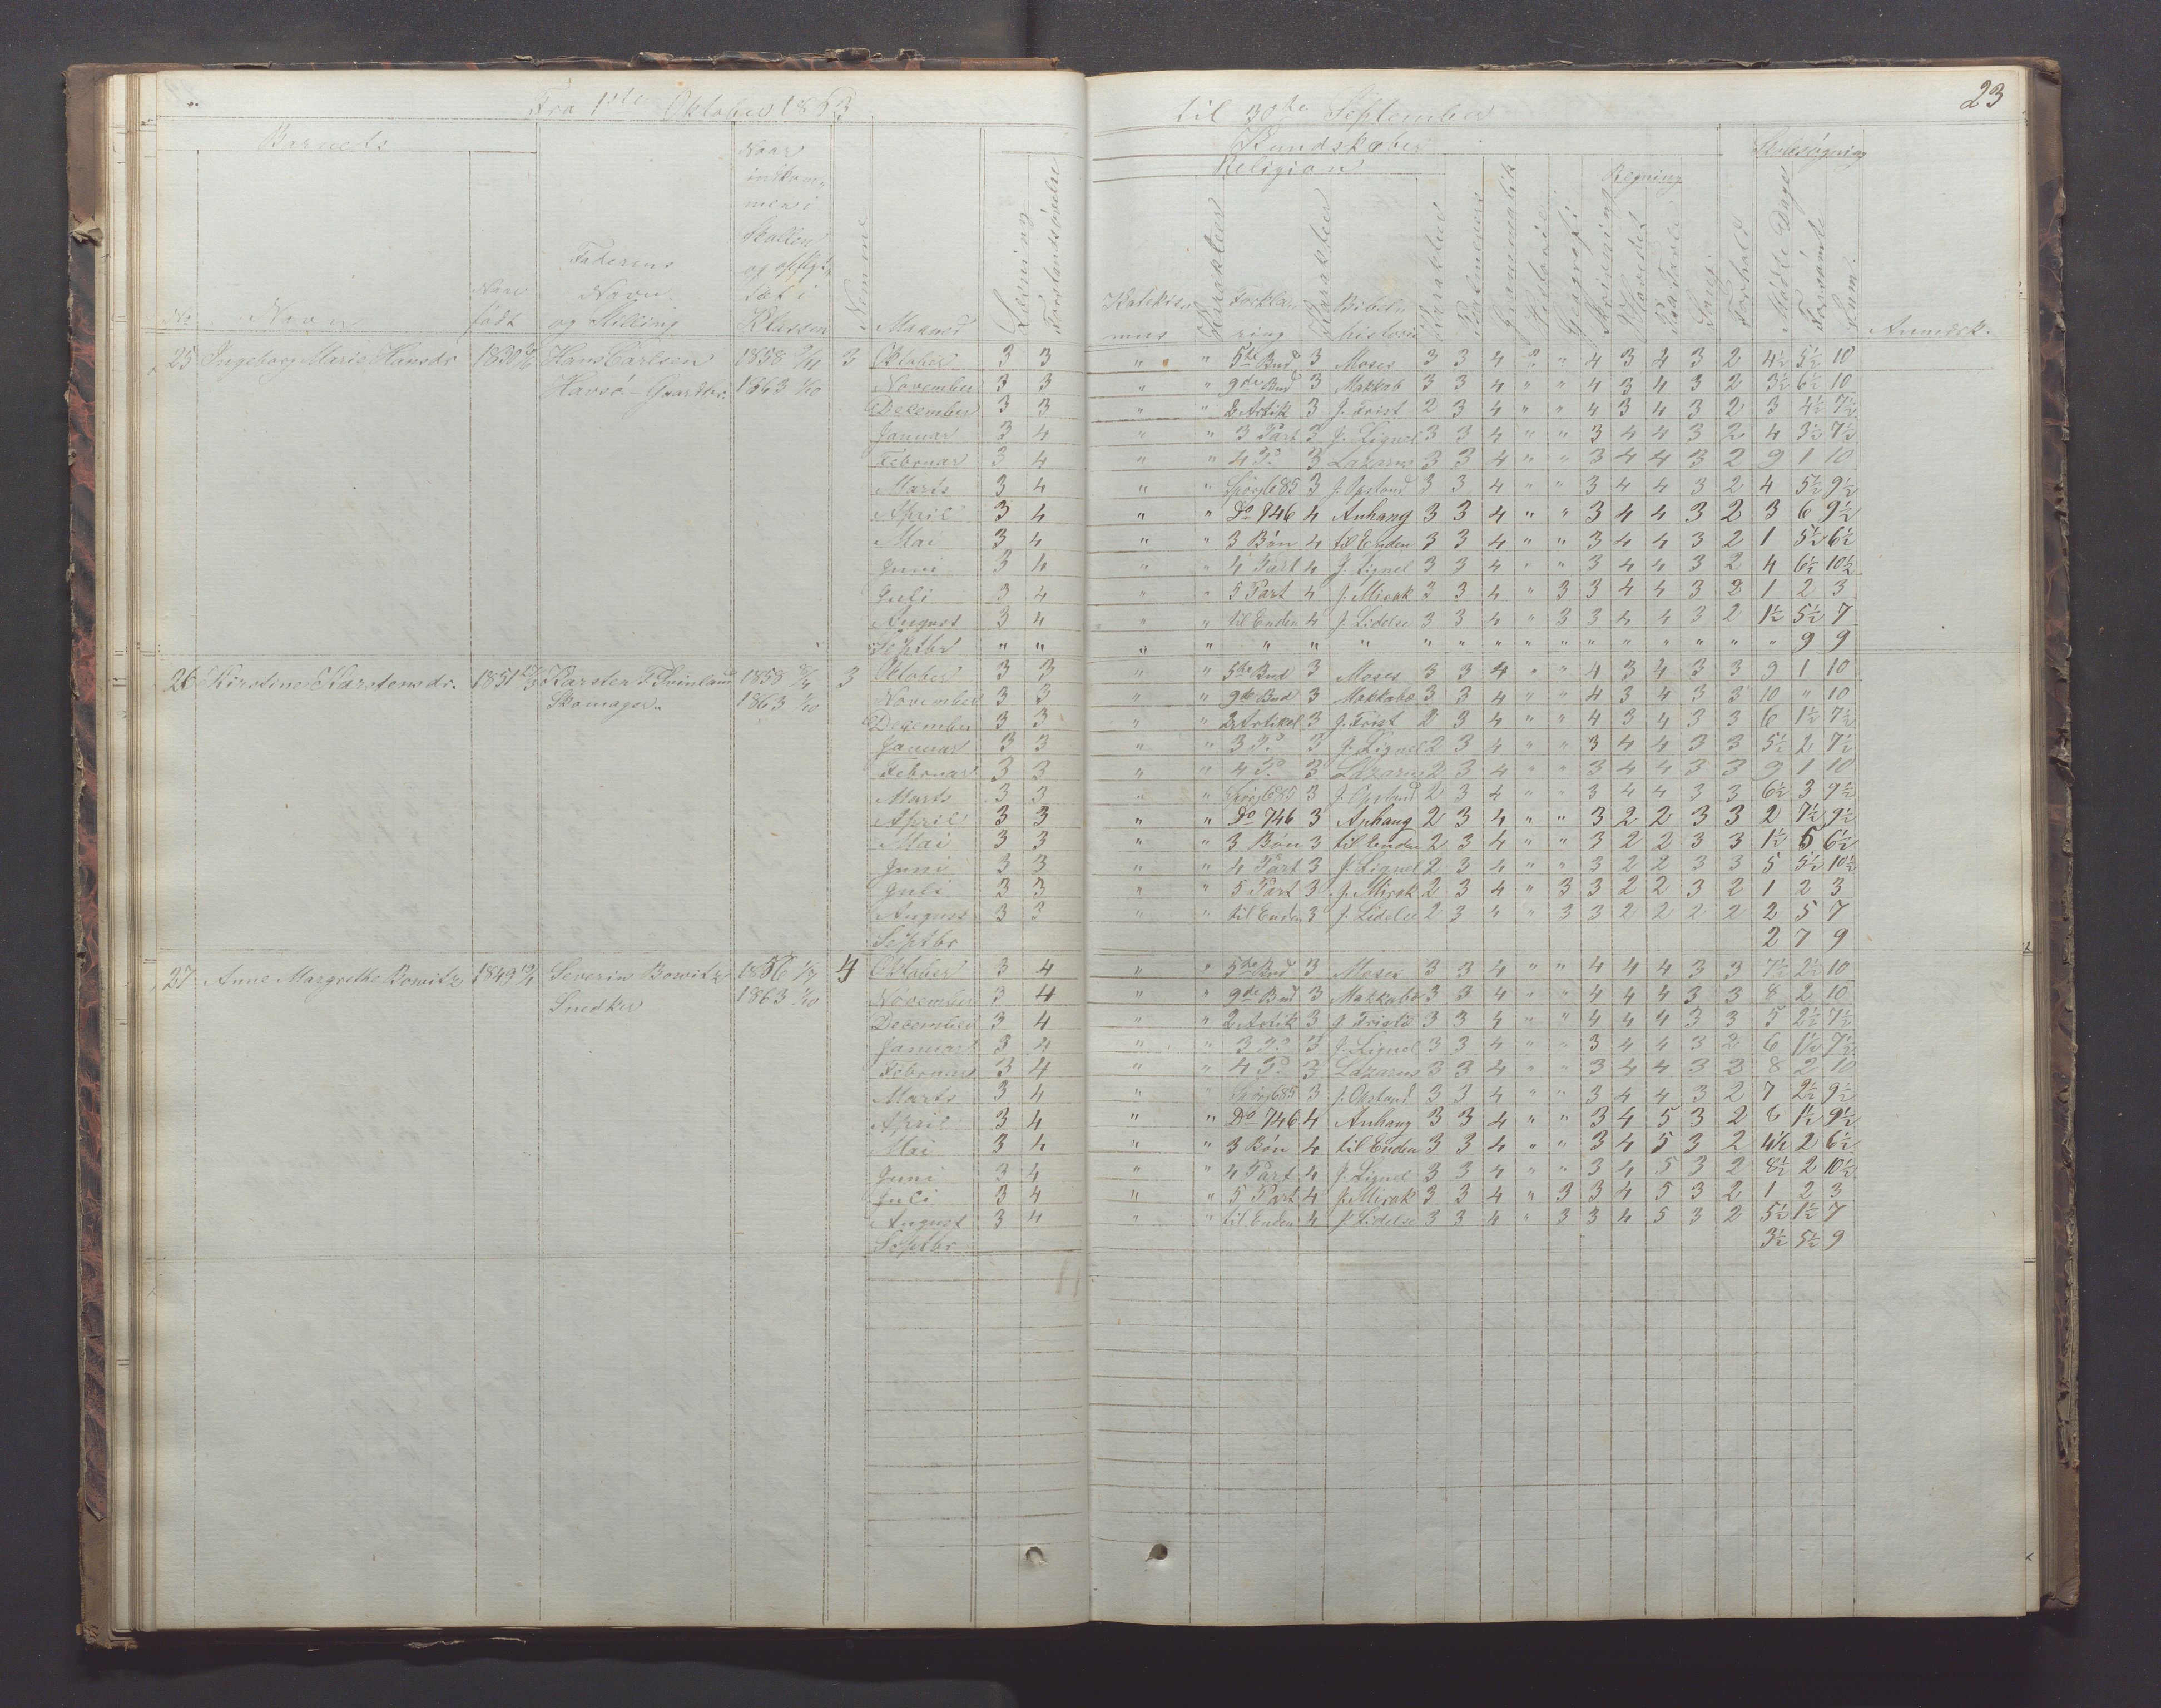 23
Fra 1ste Oktober 1863 til 30te September
Barnets Kundskaber Skolesøgning
Religion Regning
No Navn Naar født Faderens Navn og Stilling Naar indkommen i Skolen og opflyt. tet i Klassen Nemme Maaned Læsning Forstandsøvelse Katekismus Karakter Forklaring Karakter Bibelhistorie Karakter Grammatik Historie Geografi Skrivning Hovedet Tavle Sang Forhold Mødte Dage Forsømte Sum. Anmærk.
25 Ingeborg Marie Hansdr 1850 Hans Carlsen 1858 3 Oktober 3 3 " " 5te Bud 3 Moses 3 3 4 " " 4 3 4 3 2 4½ 5½ 10
Havsø - Gaardbr. 1863 1/10 November 3 3 " " 9de Bud 3 Makkab 3 3 4 " " 4 3 4 3 2 3½ 6½ 10
December 3 3 " " 2 Artik 3 J. Frist 2 3 4 " " 4 3 4 3 2 3 4½ 7½
Januar 3 4 " " 3 Part 3 J. Lignel 3 3 4 " " 3 4 4 3 2 4 3½ 7½
Februar 3 4 " " 4 Do 3 Lazarus 3 3 4 " " 3 4 4 3 2 9 1 10
Marts 3 4 " " Spørg 685 3 J. Opstand 3 3 4 " " 3 4 4 3 2 4 5½ 9½
April 3 4 " " Do 746 4 Anhang 3 3 4 " " 3 4 4 3 2 3 6 9½
Mai 3 4 " " 3 Bøn 4 til Enden 3 3 4 " " 3 4 4 3 2 1 5½ 6½
Juni 3 4 " " 4 Part 4 J. Lignel 3 3 4 " " 3 4 4 3 2 4 6½ 10½
Juli 3 4 " " 5 Part 4 J. Mirak 3 3 4 " 3 3 4 4 3 2 1 2 3
August 3 4 " " til Enden 4 J. Lidelse 3 3 4 " 3 3 4 4 3 2 1½ 5½ 7
Septbr " " " " " " " " " " " " " " " " " " 9 9
26 Kirstine Karstensdr. 1851 Karsten T. Kvinland 1858 3 Oktober 3 3 " " 5te Bud 3 Moses 3 3 4 " " 4 3 4 3 3 9 1 10
Skomager. 1863 1/10 November 3 3 " " 9de Bud 3 Makkabæ 3 3 4 " " 4 3 4 3 3 10 " 10
December 3 3 " " 2 Artikel 3 J. Frist 2 3 4 " " 4 3 4 3 3 6 1½ 7½
Januar 3 3 " " 3 Do 3 J. Lignel 2 3 4 " " 3 4 4 3 3 5½ 2 7½
Februar 3 3 " " 4 Do 3 Lazarus 2 3 4 " " 3 4 4 3 3 9 1 10
Marts 3 3 " " Spørg 685 3 J. Opstand 2 3 4 " " 3 4 4 3 3 6½ 3 9½
April 3 3 " " Do 746 3 Anhang 2 3 4 " " 3 2 2 3 3 2 7½ 9½
Mai 3 3 " " 3 Bøn 3 til Enden 2 3 4 " " 3 2 2 3 3 1½ 5 6½
Juni 3 3 " " 4 Part 3 J. Lignel 2 3 4 " " 3 2 2 3 3 5 5½ 10½
Juli 3 3 " " 5 Part 3 J. Mirak 2 3 4 " 3 3 2 2 3 2 1 2 3
August 3 3 " " til Enden 3 J. Lidelse 2 3 4 " 3 3 2 2 2 2 2 5 7
Septbr 2 7 9
27 Anne Margrethe Bowitz 1849 Severin Bowitz 1856 1/7 4 Oktober 3 4 " " 5te Bud 3 Moses 3 3 4 " " 4 4 4 3 3 7½ 2½ 10
Snedker 1863 1/10 November 3 4 " " 9de Bud 3 Makkabæ 3 3 4 " " 4 4 4 3 3 8 2 10
December 3 4 " " 2 Artik 3 J. Fristel 3 3 4 " " 4 4 4 3 3 5 2½ 7½
Januar 3 4 " " 3 Do 3 J. Lignel 3 3 4 " " 3 4 4 3 2 6 1½ 7½
Februar 3 4 " " 4 Do 3 Lazarus 3 3 4 " " 3 4 4 3 2 8 2 10
Marts 3 4 " " Spørg 685 3 J. Opstand 3 3 4 " " 3 4 4 3 2 7 2½ 9½
April 3 4 " " Do 746 4 Anhang 3 3 4 " " 3 4 5 3 2 8 1½ 9½
Mai 3 4 " " 3 Bøn 4 til Enden 3 3 4 " " 3 4 5 3 2 4½ 2 6½
Juni 3 4 " " 4 Part 4 J. Lignel 3 3 4 " " 3 4 5 3 2 8½ 2 10½
Juli 3 4 " " 5 Part 4 J. Mirak 3 3 4 " 3 3 4 5 3 2 1 2 3
August 3 4 " " til Enden 4 J. Lidelse 3 3 4 " 3 3 4 5 3 2 5½ 1½ 7
Septbr 3½ 5½ 9